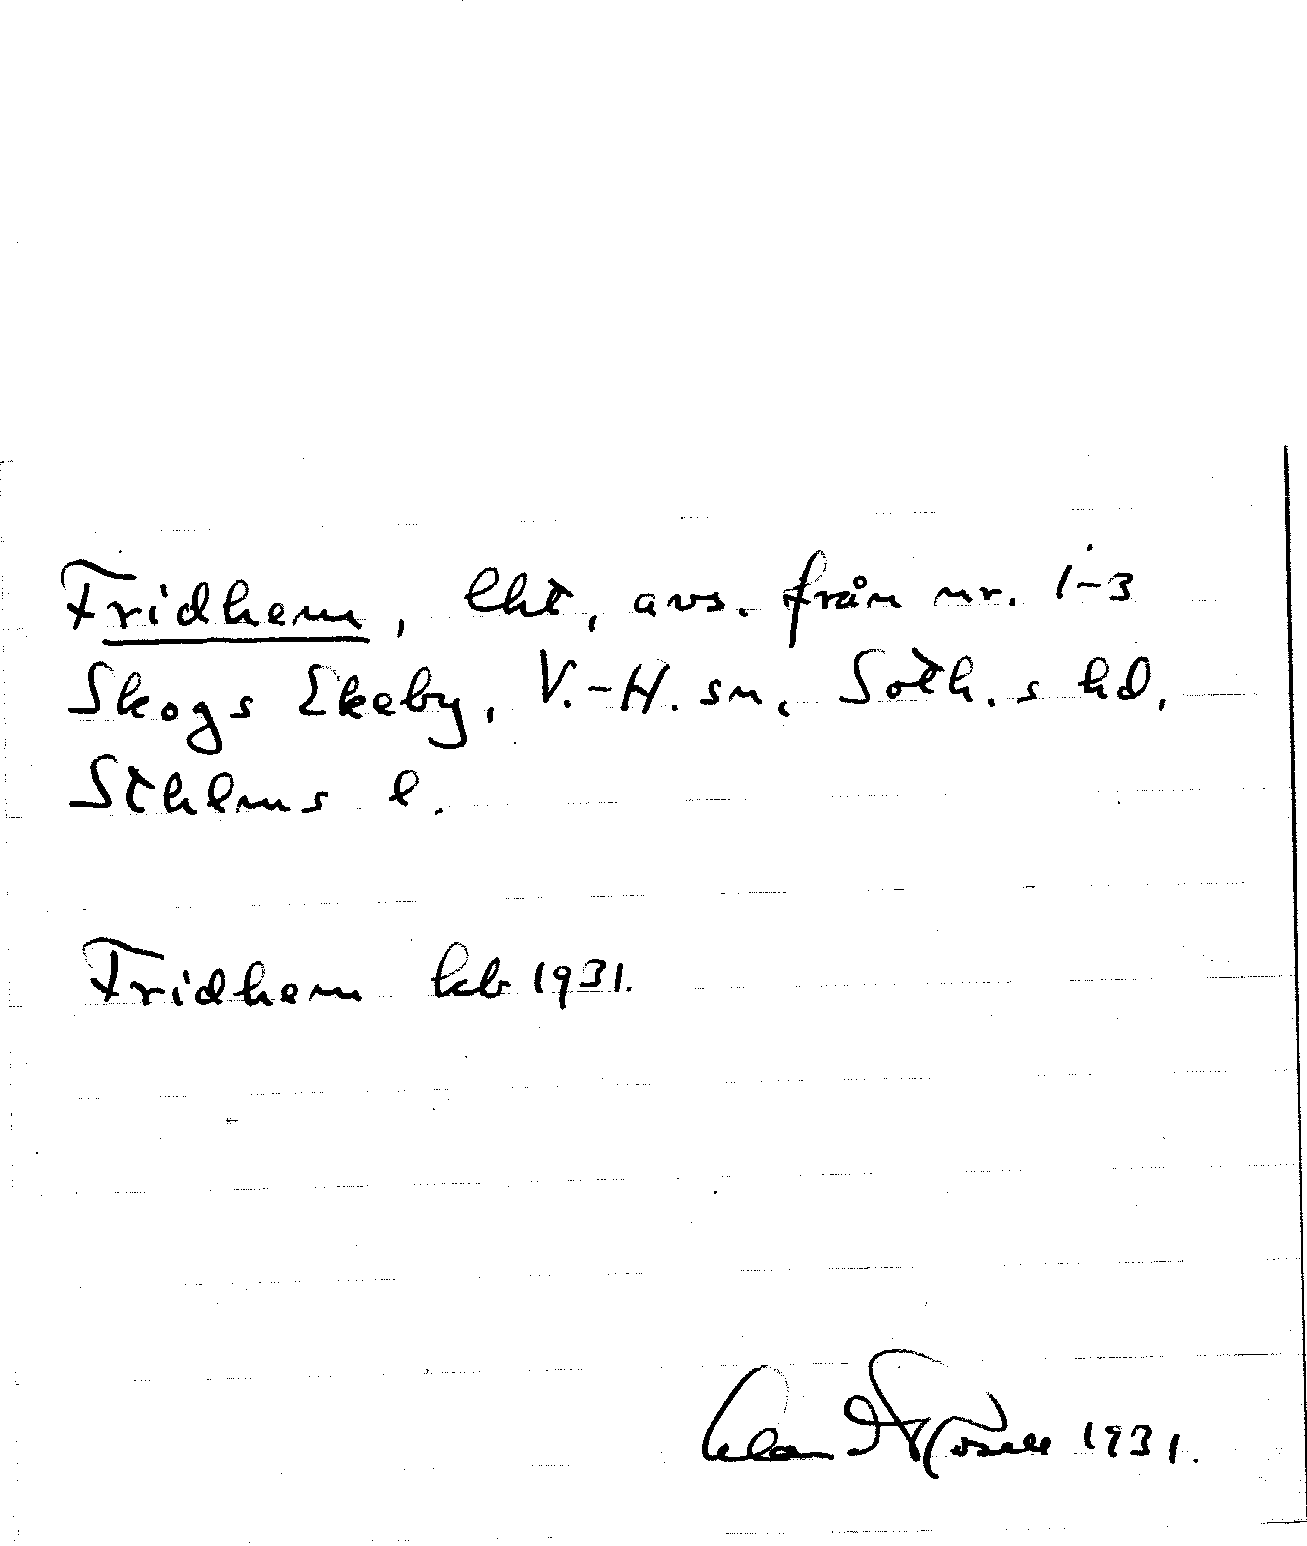 Fridhem, lht, avs. från nr. 1-3
Skogs Ekeby, V.-H. sn, Soth. s hd,
Sthlms l.
Fridhem kb 1931.
1931.